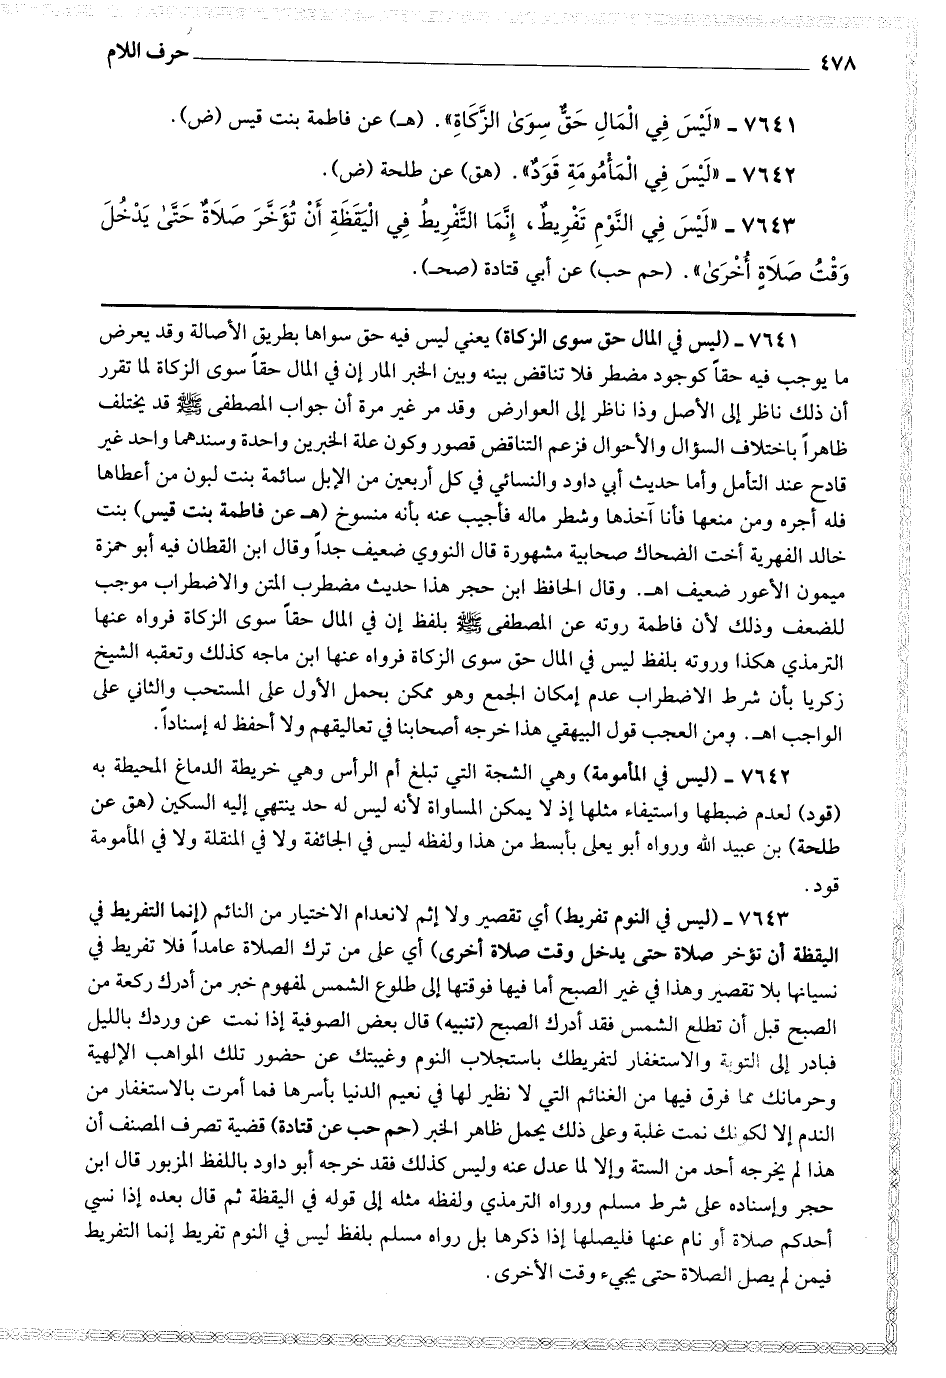 ٤٧٨ حرف اللام
٧٦٤١ ـ «لَيْسَ فِي الْمَالِ حَقٌّ سِوَىٰ الزَّكَاةِ». (هـ) عن فاطمة بنت قيس (ض).
٧٦٤٢ ـ «لَيْسَ فِي الْمَأْمُومَةِ قَوَدٌ». (هق) عن طلحة (ض).
٧٦٤٣ ـ «لَيْسَ فِي النَّوْمِ تَفْرِيطٌ، إِنَّمَا التَّفْرِيطُ فِي الْيَقَظَةِ أَنْ تُؤَخَّرَ صَلَاةٌ حَتَّىٰ يَدْخُلَ
وَقْتُ صَلَاةٍ أُخْرَىٰ». (حم حب) عن أبي قتادة (صحـ).
٧٦٤١ ـ (ليس في المال حق سوى الزكاة) يعني ليس فيه حق سواها بطريق الأصالة وقد يعرض
ما يوجب فيه حقاً كوجود مضطر فلا تناقض بينه وبين الخبر المار إن في المال حقاً سوى الزكاة لما تقرر
أن ذلك ناظر إلى الأصل وذا ناظر إلى العوارض وقد مر غير مرة أن جواب المصطفى ﷺ قد يختلف
ظاهراً باختلاف السؤال والأحوال فزعم التناقض قصور وكون علة الخبرين واحدة وسندهما واحد غير
قادح عند التأمل وأما حديث أبي داود والنسائي في كل أربعين من الإبل سائمة بنت لبون من أعطاها
فله أجره ومن منعها فأنا آخذها وشطر ماله فأجيب عنه بأنه منسوخ (هـ عن فاطمة بنت قيس) بنت
خالد الفهرية أخت الضحاك صحابية مشهورة قال النووي ضعيف جداً وقال ابن القطان فيه أبو حمزة
ميمون الأعور ضعيف اهـ. وقال الحافظ ابن حجر هذا حديث مضطرب المتن والاضطراب موجب
للضعف وذلك لأن فاطمة روته عن المصطفى ﷺ بلفظ إن في المال حقاً سوى الزكاة فرواه عنها
الترمذي هكذا وروته بلفظ ليس في المال حق سوى الزكاة فرواه عنها ابن ماجه كذلك وتعقبه الشيخ
زكريا بأن شرط الاضطراب عدم إمكان الجمع وهو ممكن بحمل الأول على المستحب والثاني على
الواجب اهـ. ومن العجب قول البيهقي هذا خرجه أصحابنا في تعاليقهم ولا أحفظ له إسناداً.
٧٦٤٢ ـ (ليس في المأمومة) وهي الشجة التي تبلغ أم الرأس وهي خريطة الدماغ المحيطة به
(قود) لعدم ضبطها واستيفاء مثلها إذ لا يمكن المساواة لأنه ليس له حد ينتهي إليه السكين (هق عن
طلحة) بن عبيد الله ورواه أبو يعلى بأبسط من هذا ولفظه ليس في الجائفة ولا في المنقلة ولا في المأمومة
قود.
٧٦٤٣ ـ (ليس في النوم تفريط) أي تقصير ولا إثم لانعدام الاختيار من النائم (إنما التفريط في
اليقظة أن تؤخر صلاة حتى يدخل وقت صلاة أخرى) أي على من ترك الصلاة عامداً فلا تفريط في
نسيانها بلا تقصير وهذا في غير الصبح أما فيها فوقتها إلى طلوع الشمس لمفهوم خبر من أدرك ركعة من
الصبح قبل أن تطلع الشمس فقد أدرك الصبح (تنبيه) قال بعض الصوفية إذا نمت عن وردك بالليل
فبادر إلى التوبة والاستغفار لتفريطك باستجلاب النوم وغيبتك عن حضور تلك المواهب الإلهية
وحرمانك مما فرق فيها من الغنائم التي لا نظير لها في نعيم الدنيا بأسرها فما أمرت بالاستغفار من
الندم إلا لكونك نمت غلبة وعلى ذلك يحمل ظاهر الخبر (حم حب عن قتادة) قضية تصرف المصنف أن
هذا لم يخرجه أحد من الستة وإلا لما عدل عنه وليس كذلك فقد خرجه أبو داود باللفظ المزبور قال ابن
حجر وإسناده على شرط مسلم ورواه الترمذي ولفظه مثله إلى قوله في اليقظة ثم قال بعده إذا نسي
أحدكم صلاة أو نام عنها فليصلها إذا ذكرها بل رواه مسلم بلفظ ليس في النوم تفريط إنما التفريط
فيمن لم يصل الصلاة حتى يجيء وقت الأخرى.